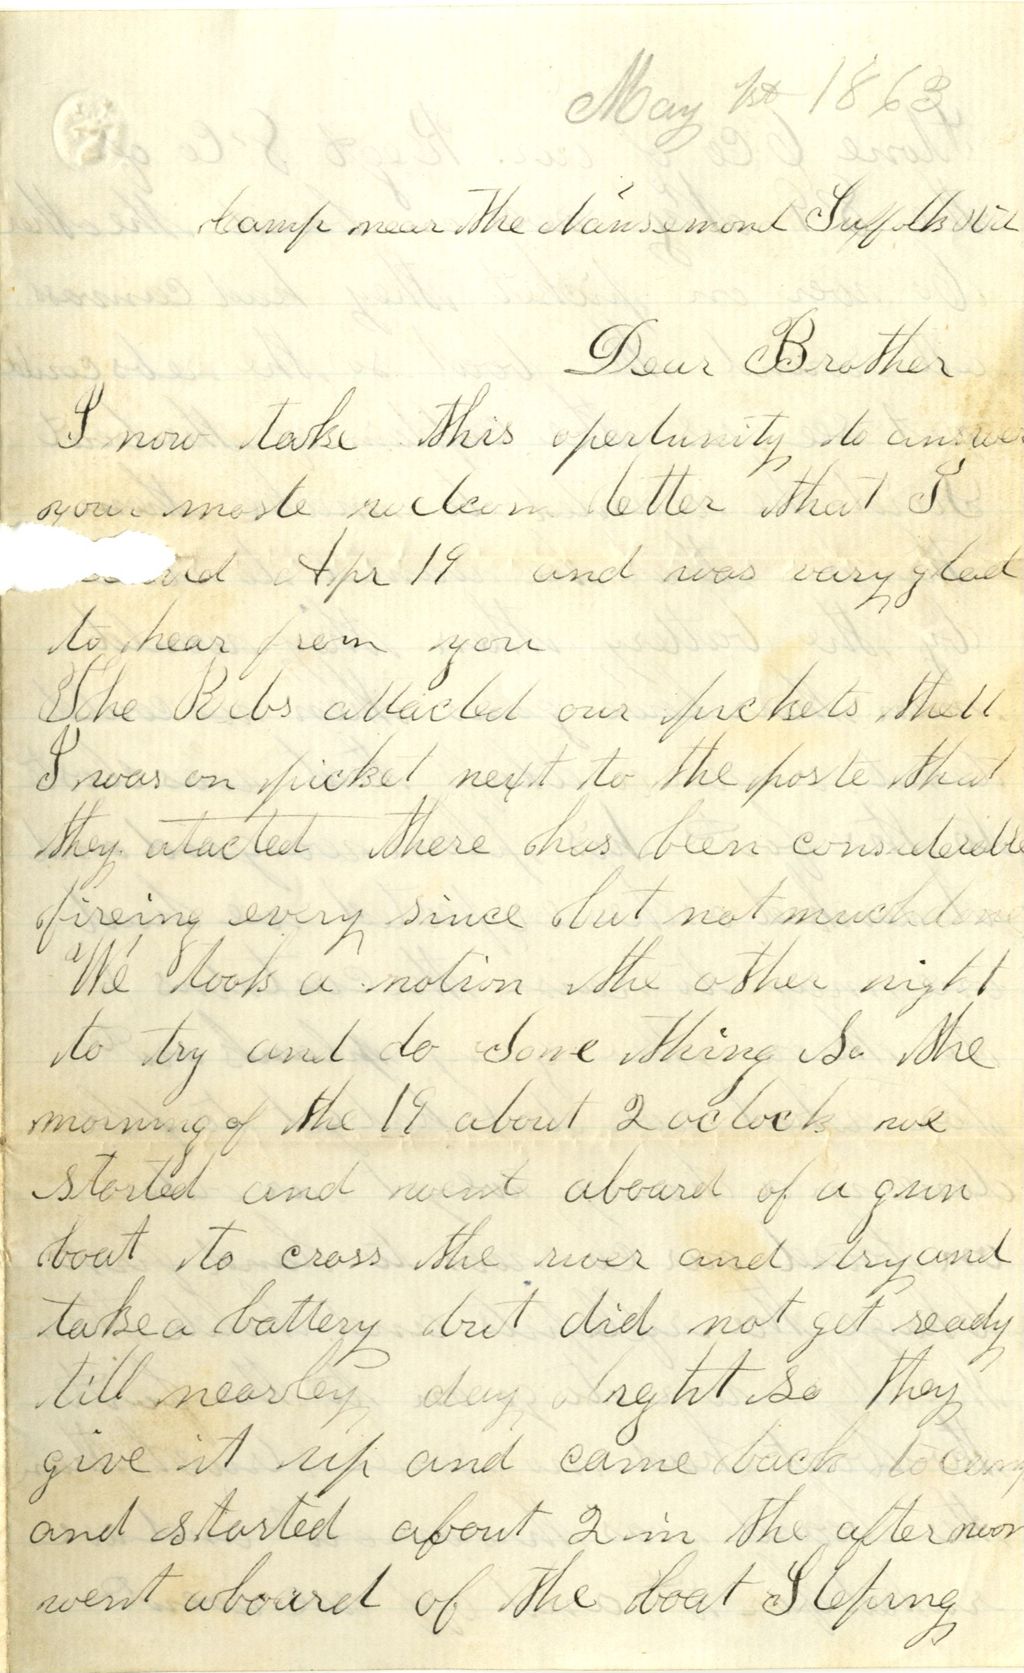 May 1st 1863
Camp near the Nansemond Suffolk
Dear Brother
I now take this opertunity to answer
your moste welcom letter that I
Apr 19 and was vary glad
to hear from you
The Rebs attacted our pickets the 11
I was on picket next to the poste that
they atacted there has been considerible
fireing every since but not much done
We took a notion the other night
to try and do Some thing So the
morning of the 19 about 2 oclock we
started and went aboard of a gun
boat to cross the river and try and
take a battery but did not get ready
till nearley day light So they
give it up and came back to camp
and started about 2 in the afternoon
went aboard of the boat Steping